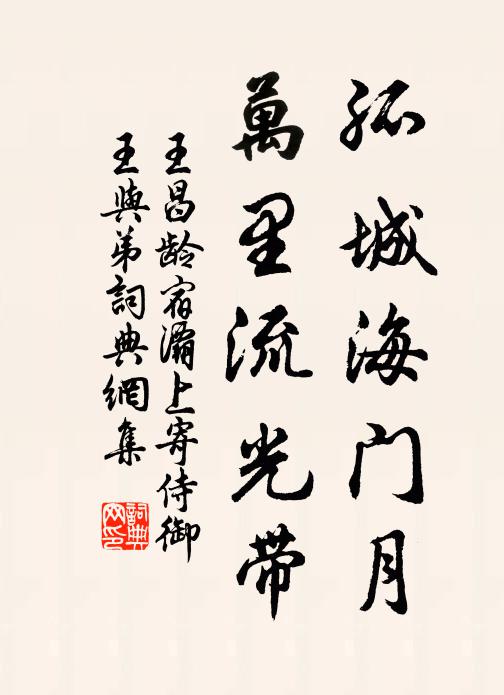 孤城海门月
萬里流光帶
王昌龄宿灞上寄侍御
王與弟詞典網集
詞典
网印